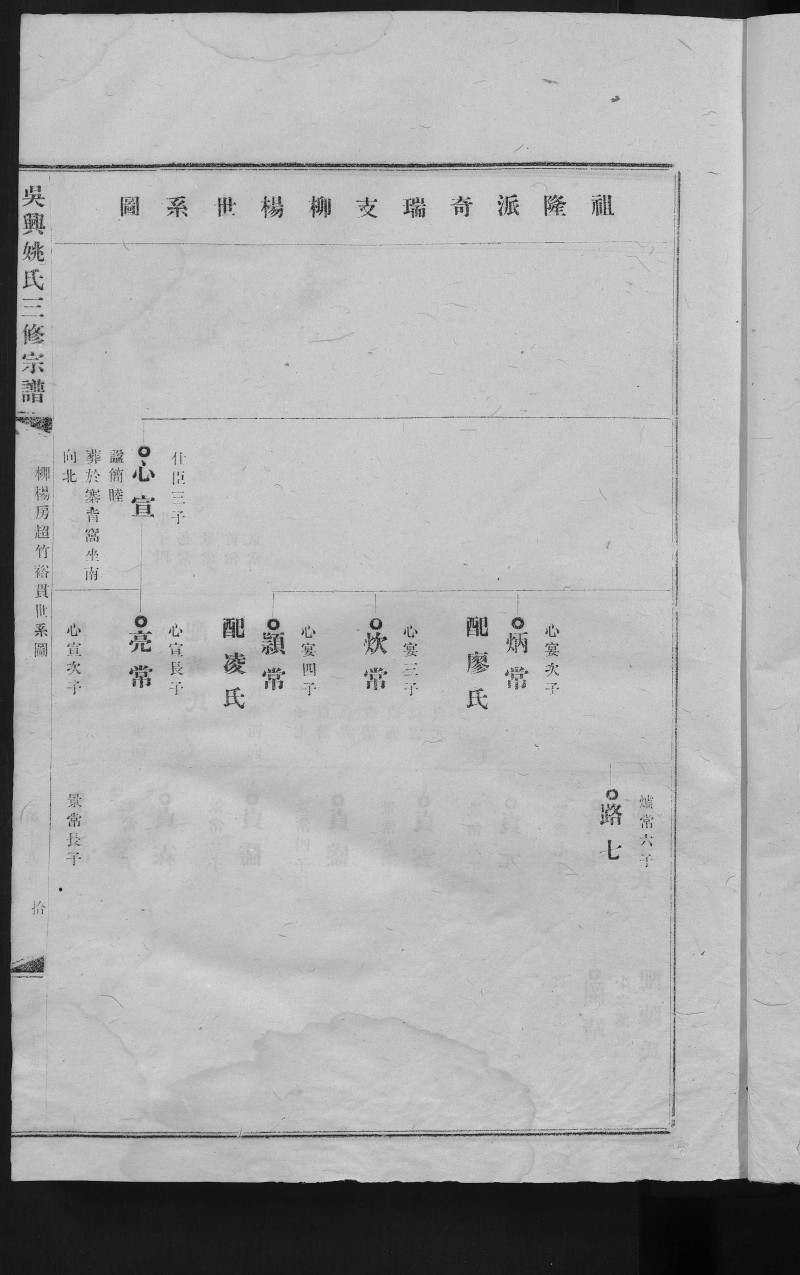 祖隆派奇瑞支柳楊世系圖
爐常六子
路七
心宴次子
炳常
配廖氏
心宴三子
炊常
心宴四子
顯常
配凌氏
仕臣三子
心宣
諡簡睦
葬於寨背窩坐南
向北
心宣長子
亮常
心宣次子
景常長子
吳興姚氏三修宗譜
柳楊房超竹裕貫世系圖
拾